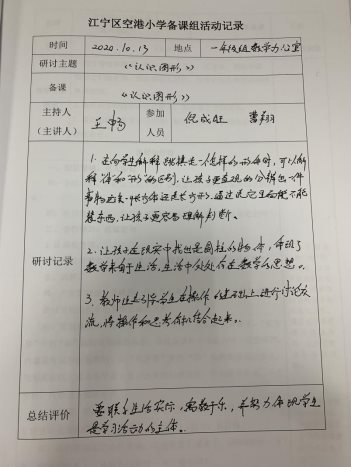 江宁区空港小学备课组活动记录
时间 2020.10.13 地点 一年级组数学办公室
研讨主题 《认识图形》
备课 《认识图形》
主持人 王畅 参加 倪成旺 曹翔
（主讲人） 人员
1. 在向学生解释跳棋是一个怎样的形体时，可以解
释“体”和“形”的区别，让孩子更直观的分辨出一件
事物
让孩子更容易理解判断。
2. 让孩子在现实中找出是圆柱的物体，体现了
数学来自于生活，生活中处处存在数学的思想。
研讨记录
3. 教师还要引导学生在操作的基础上进行讨论交
流，将操作和思考有机结合起来。
总结评价 要联系生活实际，寓教于乐，并努力体现学生
是学习活动的主体。